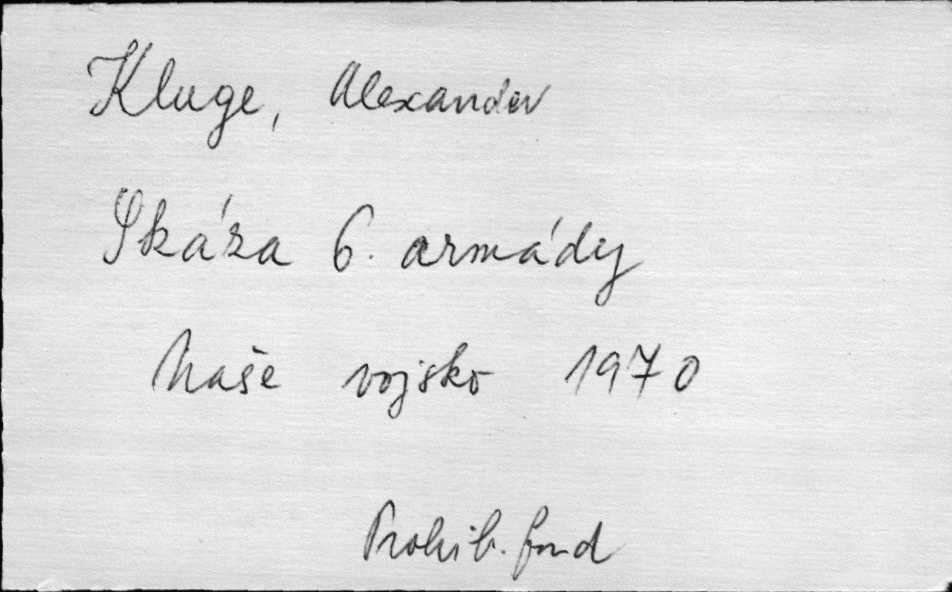 Kluge, Alexander
Skáza 6. armády
Naše vojsko 1970
Prohib. fond